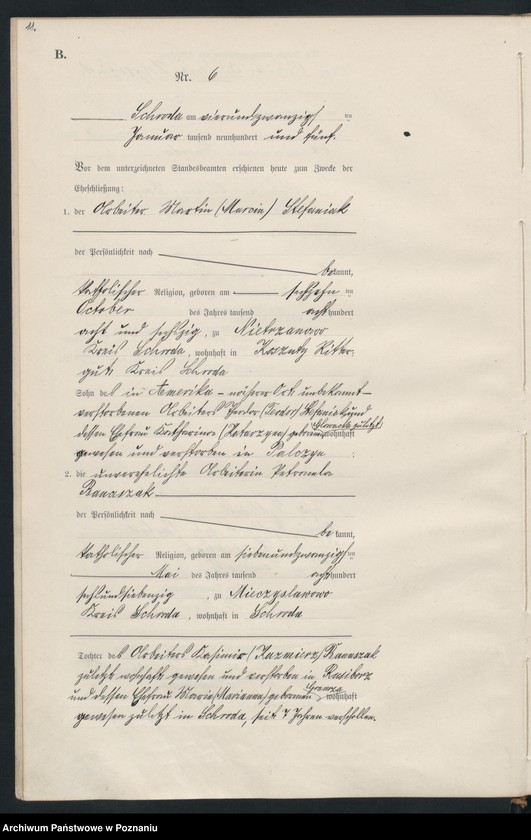 11.
B.
Nr. 6
Schroda am vierundzwanzigsten
Januar tausend neunhundert und fünf.
Vor dem unterzeichneten Standesbeamten erschienen heute zum Zwecke der
Eheschließung:
1. der Arbeiter Martin (Marcin) Stefaniak
der Persönlichkeit nach
bekannt,
katholischer Religion, geboren am sechzehnten
October des Jahres tausend achthundert
acht und sechzig, zu Nietrzanowo
Kreis Schroda, wohnhaft in Koszuty Ritter-
gut, Kreis Schroda
Sohn des in Amerika – näherer Ort unbekannt –
verstorbenen Arbeiters Theodor (Teodor) Stefaniak und
dessen Ehefrau Katharina (Katarzyna) geborenen zuletzt wohnhaft
gewesen und verstorben in
2. die unverehelichte Arbeiterin Petronela
Ranaszak
der Persönlichkeit nach
bekannt,
katholischer Religion, geboren am siebenundzwanzigsten
Mai des Jahres tausend achthundert
sechsundsiebenzig, zu Mieczyslawowo
Kreis Schroda, wohnhaft in Schroda
Tochter des Arbeiters Kasimir (Kazmierz) Ranaszak
zuletzt wohnhaft gewesen und verstorben in Rusiborz
und dessen Ehefrau Marie (Marianna) geborenen wohnhaft
gewesen zuletzt in Schroda, seit 7 Jahren verschollen.
Archiwum Państwowe w Poznaniu